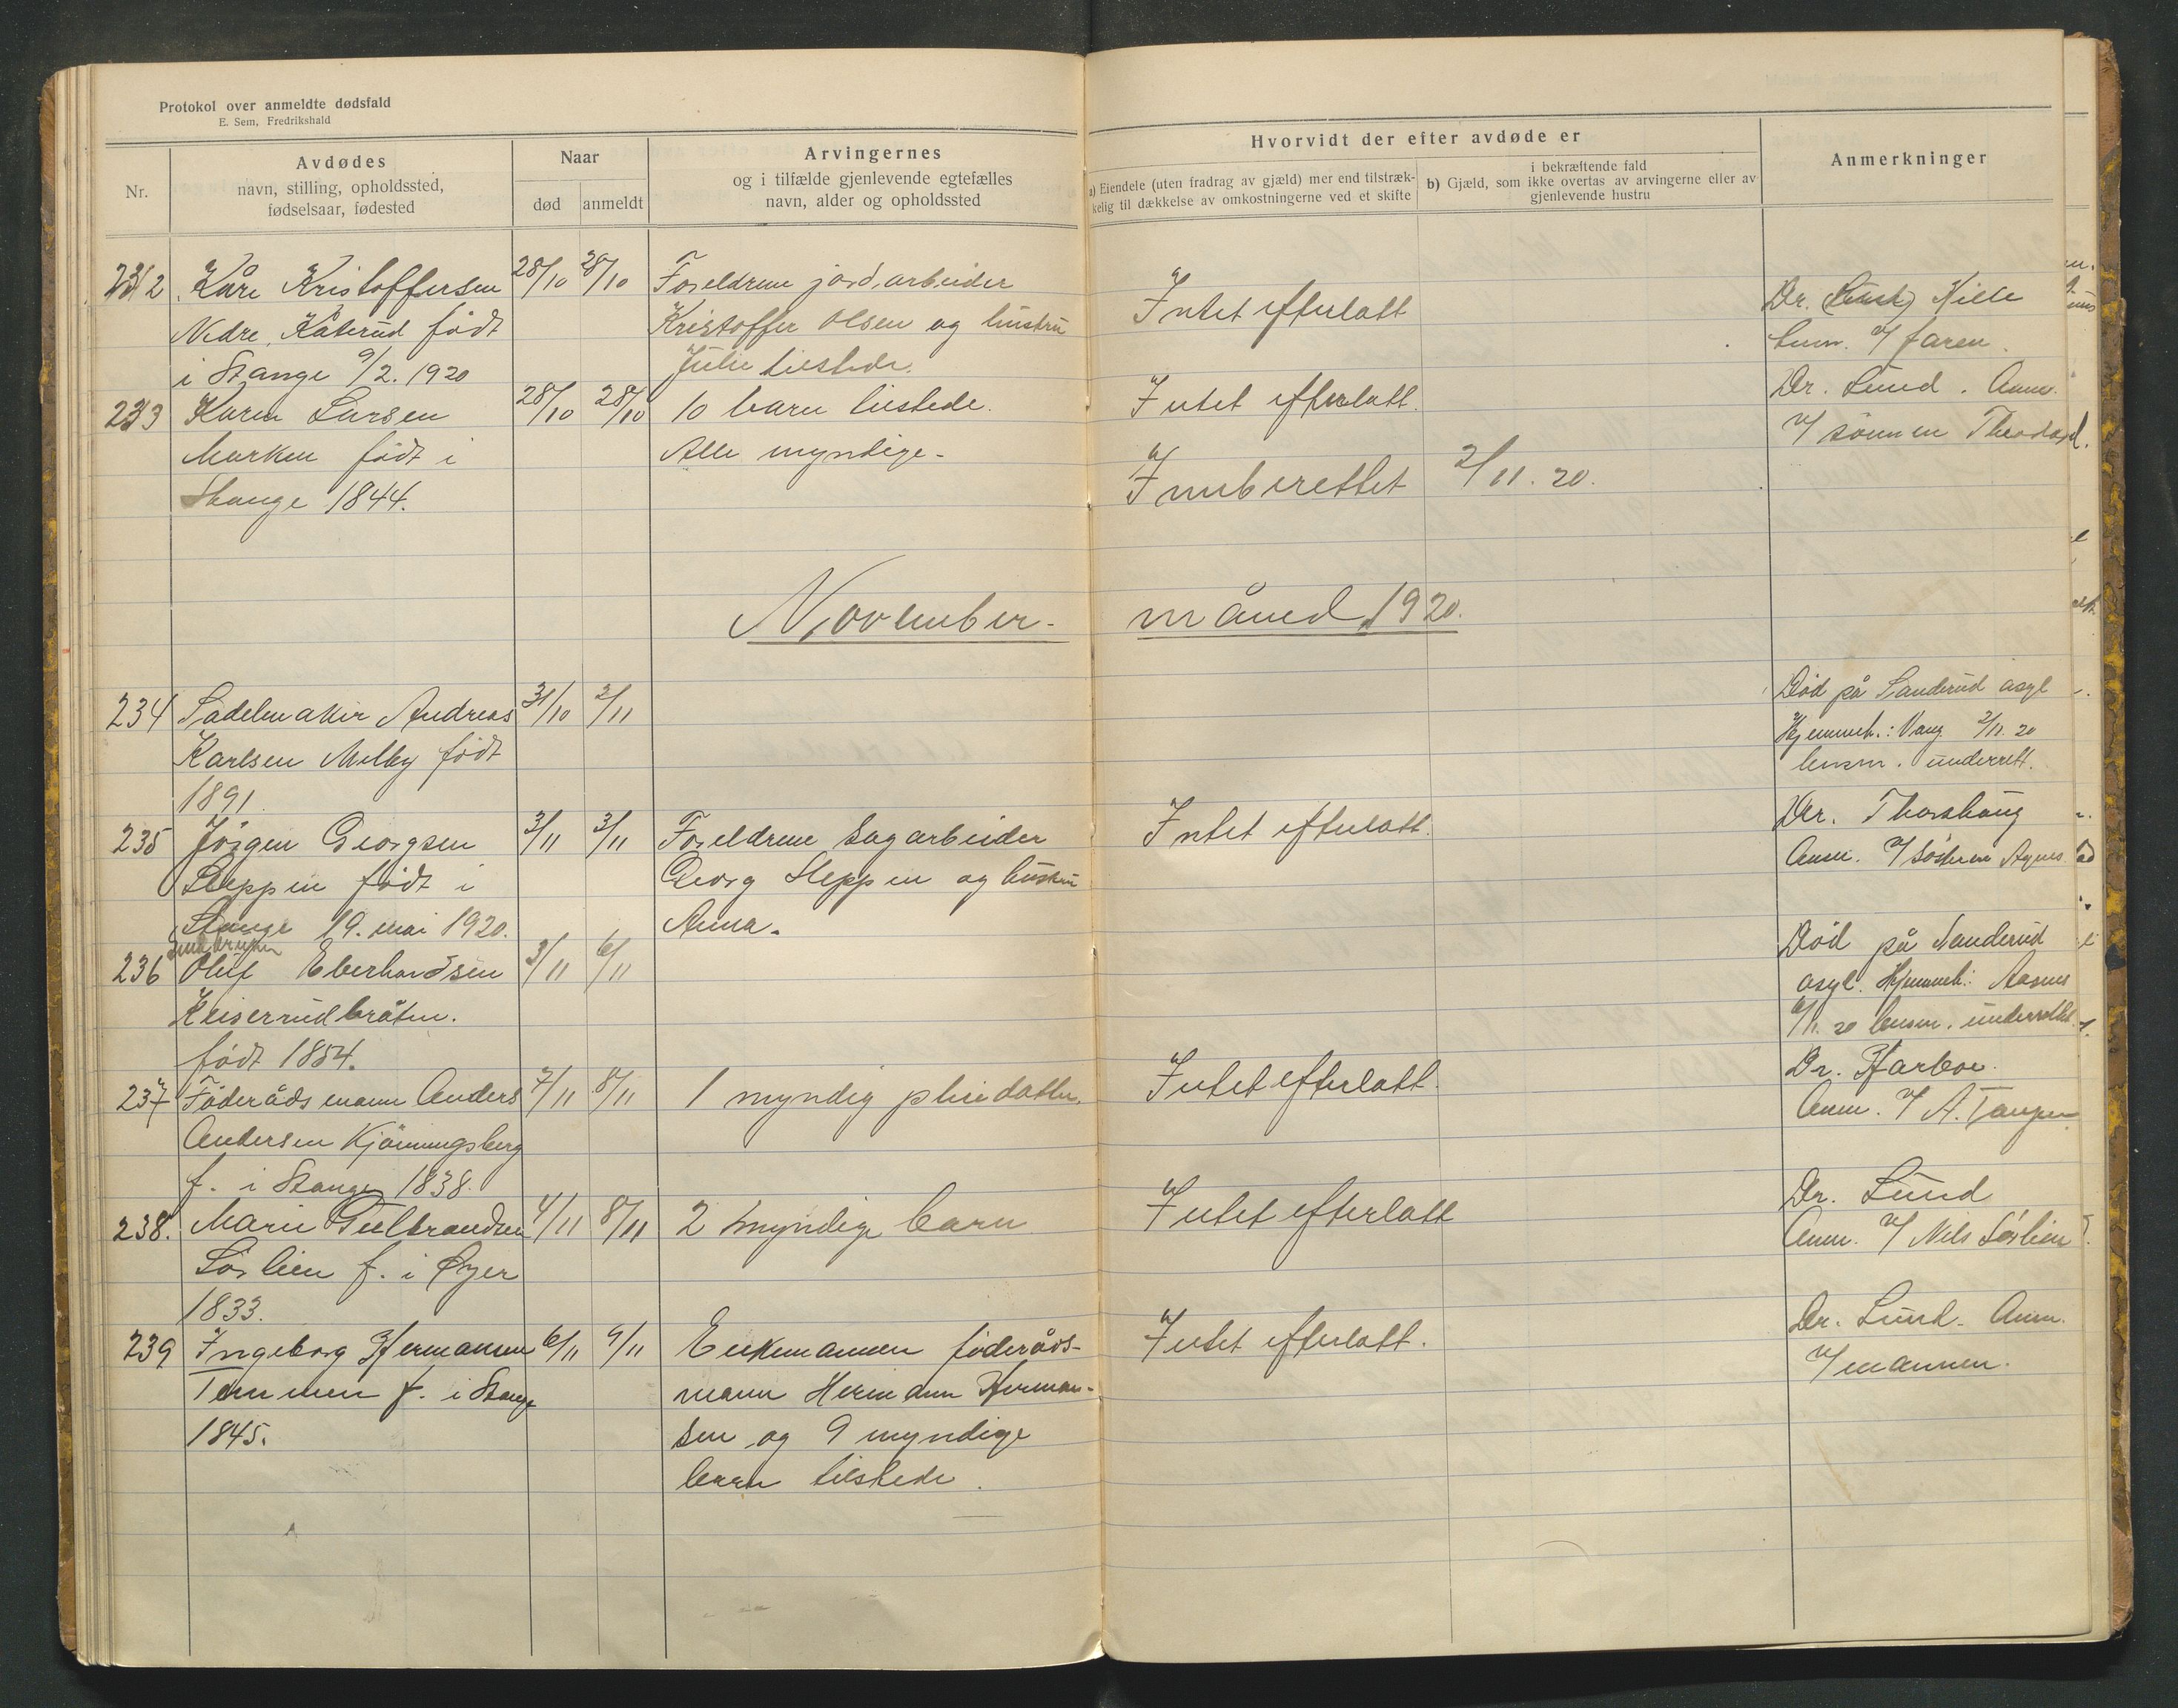 Protokol over anmeldte dødsfald
E. Sem, Fredrikshald
Nr.
Avdødes
navn, stilling, opholdssted,
fødselsaar, fødested
Naar
død
anmeldt
Arvingernes
og i tilfælde gjenlevende egtefælles
navn, alder og opholdssted
Hvorvidt der efter avdøde er
a) Eiendele (uten fradrag av gjæld) mer end tilstræk-
kelig til dækkelse av omkostningerne ved et skifte
i bekræftende fald
b) Gjæld, som ikke overtas av arvingerne eller av
gjenlevende hustru
Anmerkninger
232 Kåre Kristoffersen 28/10 28/10 Foreldrene jordarbeider Intet efterlatt Dr. Kille
Nedre Kåterud født Kristoffer Olsen og hustru Anm. v/ faren.
i Stange 9/2. 1920 Julie tilstede.
233 Karen Larsen 28/10 28/10 10 barn tilstede. Intet efterlatt. Dr. Lund. Anm.
Marken født i Alle myndige. v/ sønnen Theodor
Stange 1844. Innberettet 2/11. 20.
November- måned 1920.
234 Sadelmaker Andreas 31/10 2/11 Død på Sanderud asyl
Karlsen Melby født Hjemmeh.: Vang 2/11. 20
1891. lensm. underrett.
235 Jörgen Georgsen 3/11 3/11 Foreldrene Sagarbeider Intet efterlatt. Dr. Thorshaug
Sleppen født i Georg Sleppen og hustru Anm. v/ søsteren Agnes
Stange 19. mai 1920. Anna.
Småbruger
236 Oluf Eberhardsen 3/11 6/11 Död på Sanderud
Keiserudbråten. asyl. Hjemmeh: Aasnes
født 1854. 6/11. 20 lensm. underrettet.
237 Föderådsmann Anders 7/11 8/11 1 myndig pleiedatter. Intet efterlatt. Dr. Harboe.
Andersen Kjönningsberg Anm. v/ A. Tangen
f. i Stange 1838.
238. Marie Gulbrandsen 4/11 8/11 2 myndige barn Intet efterlatt Dr. Lund
Sörlien f. i Øyer Anm. v/ Nils Sörlien
1833.
239 Ingeborg Hermansen 6/11 9/11 Enkemannen föderåds- Intet efterlatt. Dr. Lund. Anm.
Tommen f. i Stange mann Hermann Herman- v/ mannen.
1845. sen og 9 myndige
barn tilstede.